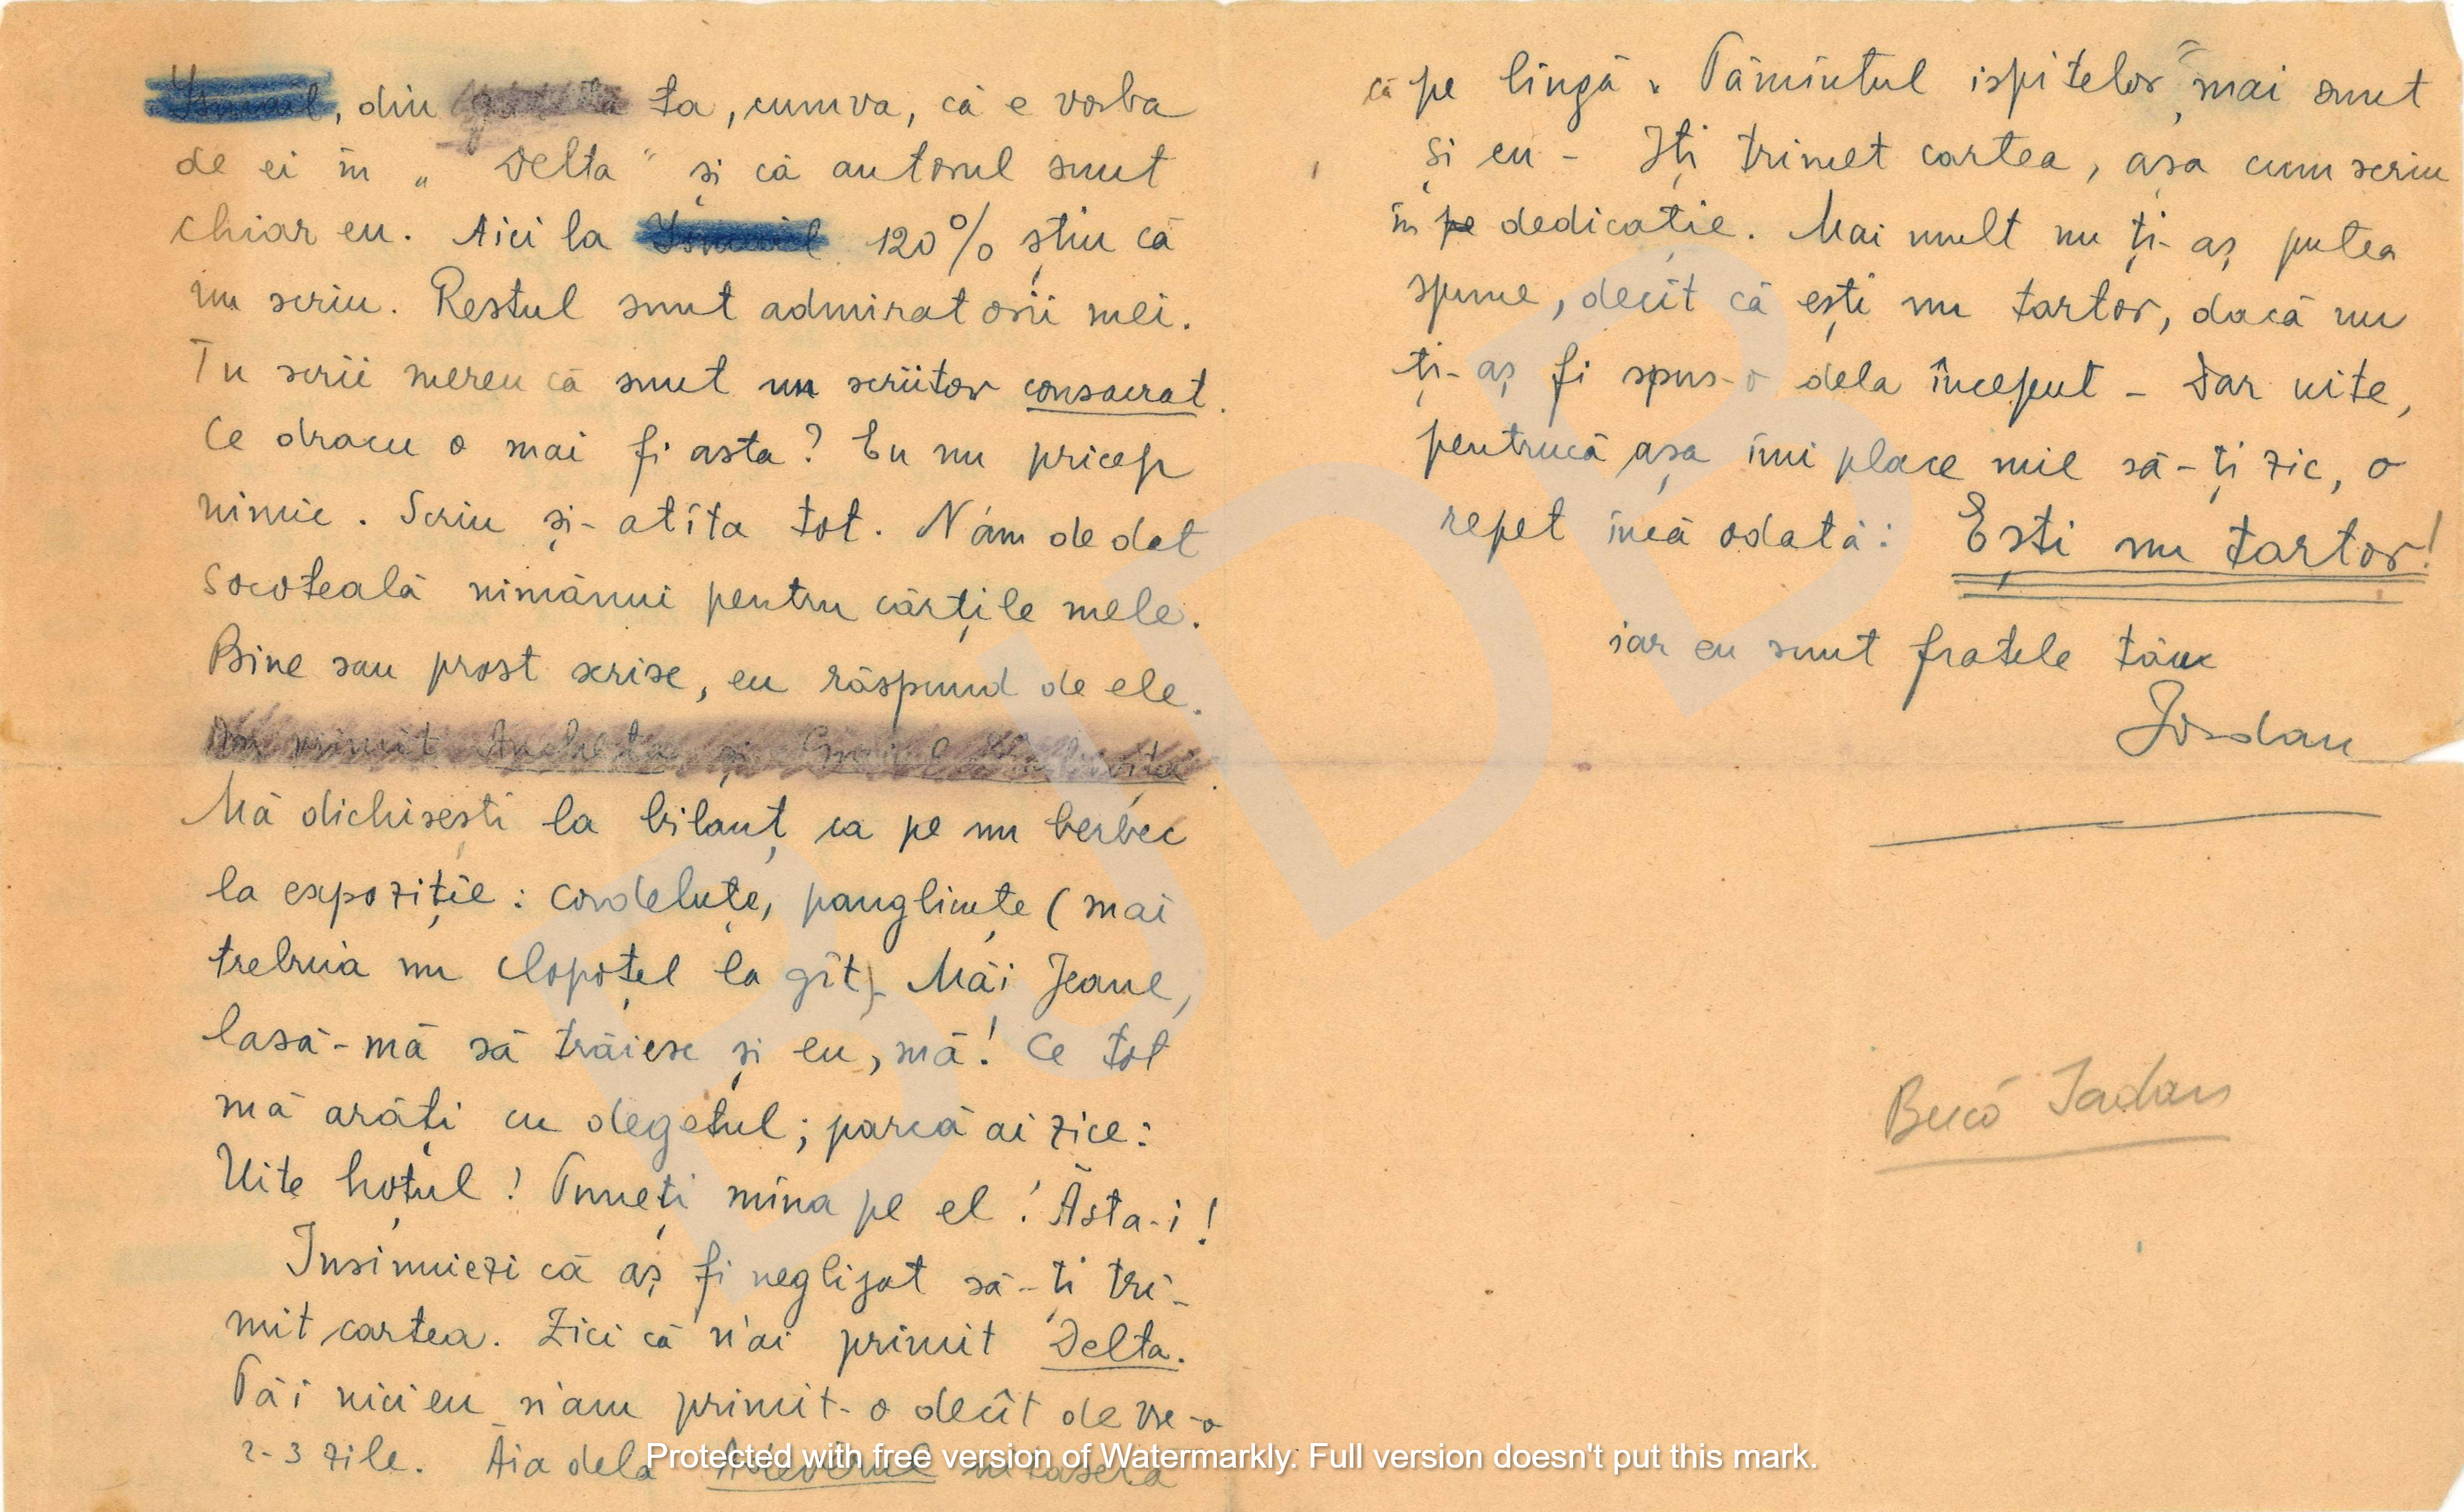 Ismail, din ta, cumva, că e vorba
de ei în „Delta" și că autorul sunt
chiar eu. Aici la Ismail 120% știu că
nu scriu. Restul sunt admiratorii mei.
Tu scrii mereu că sunt un scriitor consacrat.
Ce dracu o mai fi asta? Eu nu pricep
nimic. Scriu și-atîta tot. N'am de dat
socoteală nimănui pentru cărțile mele.
Bine sau prost scrise, eu răspund de ele.
Am primit Ancheta și
Mă dichisești la bilanț ca pe un berbec
la expoziție: cordeluțe, panglicuțe (mai
trebuia un clopoțel la gît). Măi Jeane,
lasă-mă să trăiesc și eu, mă! Ce tot
mă arăți cu degetul; parcă ai zice:
Uite hoțul! Puneți mîna pe el! Ăsta-i!
Insinuiezi că aș fi neglijat să-ți tri-
mit cartea. Zici că n'ai primit Delta.
Păi nici eu n'am primit-o decît de vre-o
2-3 zile. Ăia dela uitaseră
că pe lîngă „Pămîntul ispitelor" mai sunt
și eu - Iți trimet cartea, așa cum scriu
în pe dedicație. Mai mult nu ți-aș putea
spune, decît că ești un tartor, dacă nu
ți-aș fi spus-o dela început - Dar uite,
pentrucă așa îmi place mie să-ți zic, o
repet încă odată: Ești un tartor!
iar eu sunt fratele tău
Iordan
Protected with free version of Watermarkly. Full version doesn't put this mark.